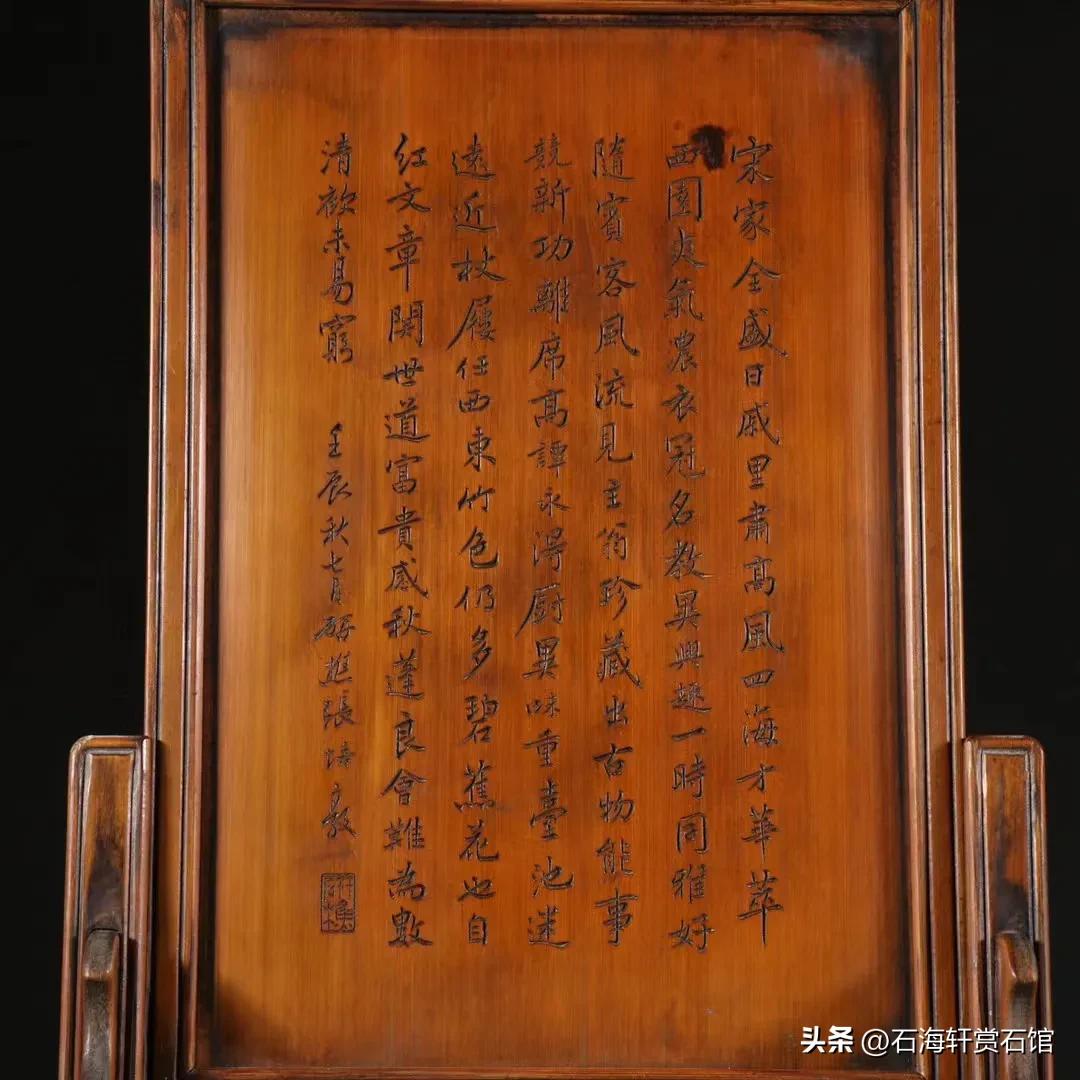 宋家全盛日戚里肅高風四海才華萃
西園爽氣濃衣冠名教異興趣一時同雅好
隨賓客風流見主翁珍藏出古物能事
競新功離席高譚永淂厨異味重臺池迷
遠近杖屨任西東竹色仍多碧蕉花也自
紅文章関世道富貴感秋蓬良會難為數
清欲未易窮 壬辰秋七月研樵張培敦
研樵
头条 @石海轩赏石馆